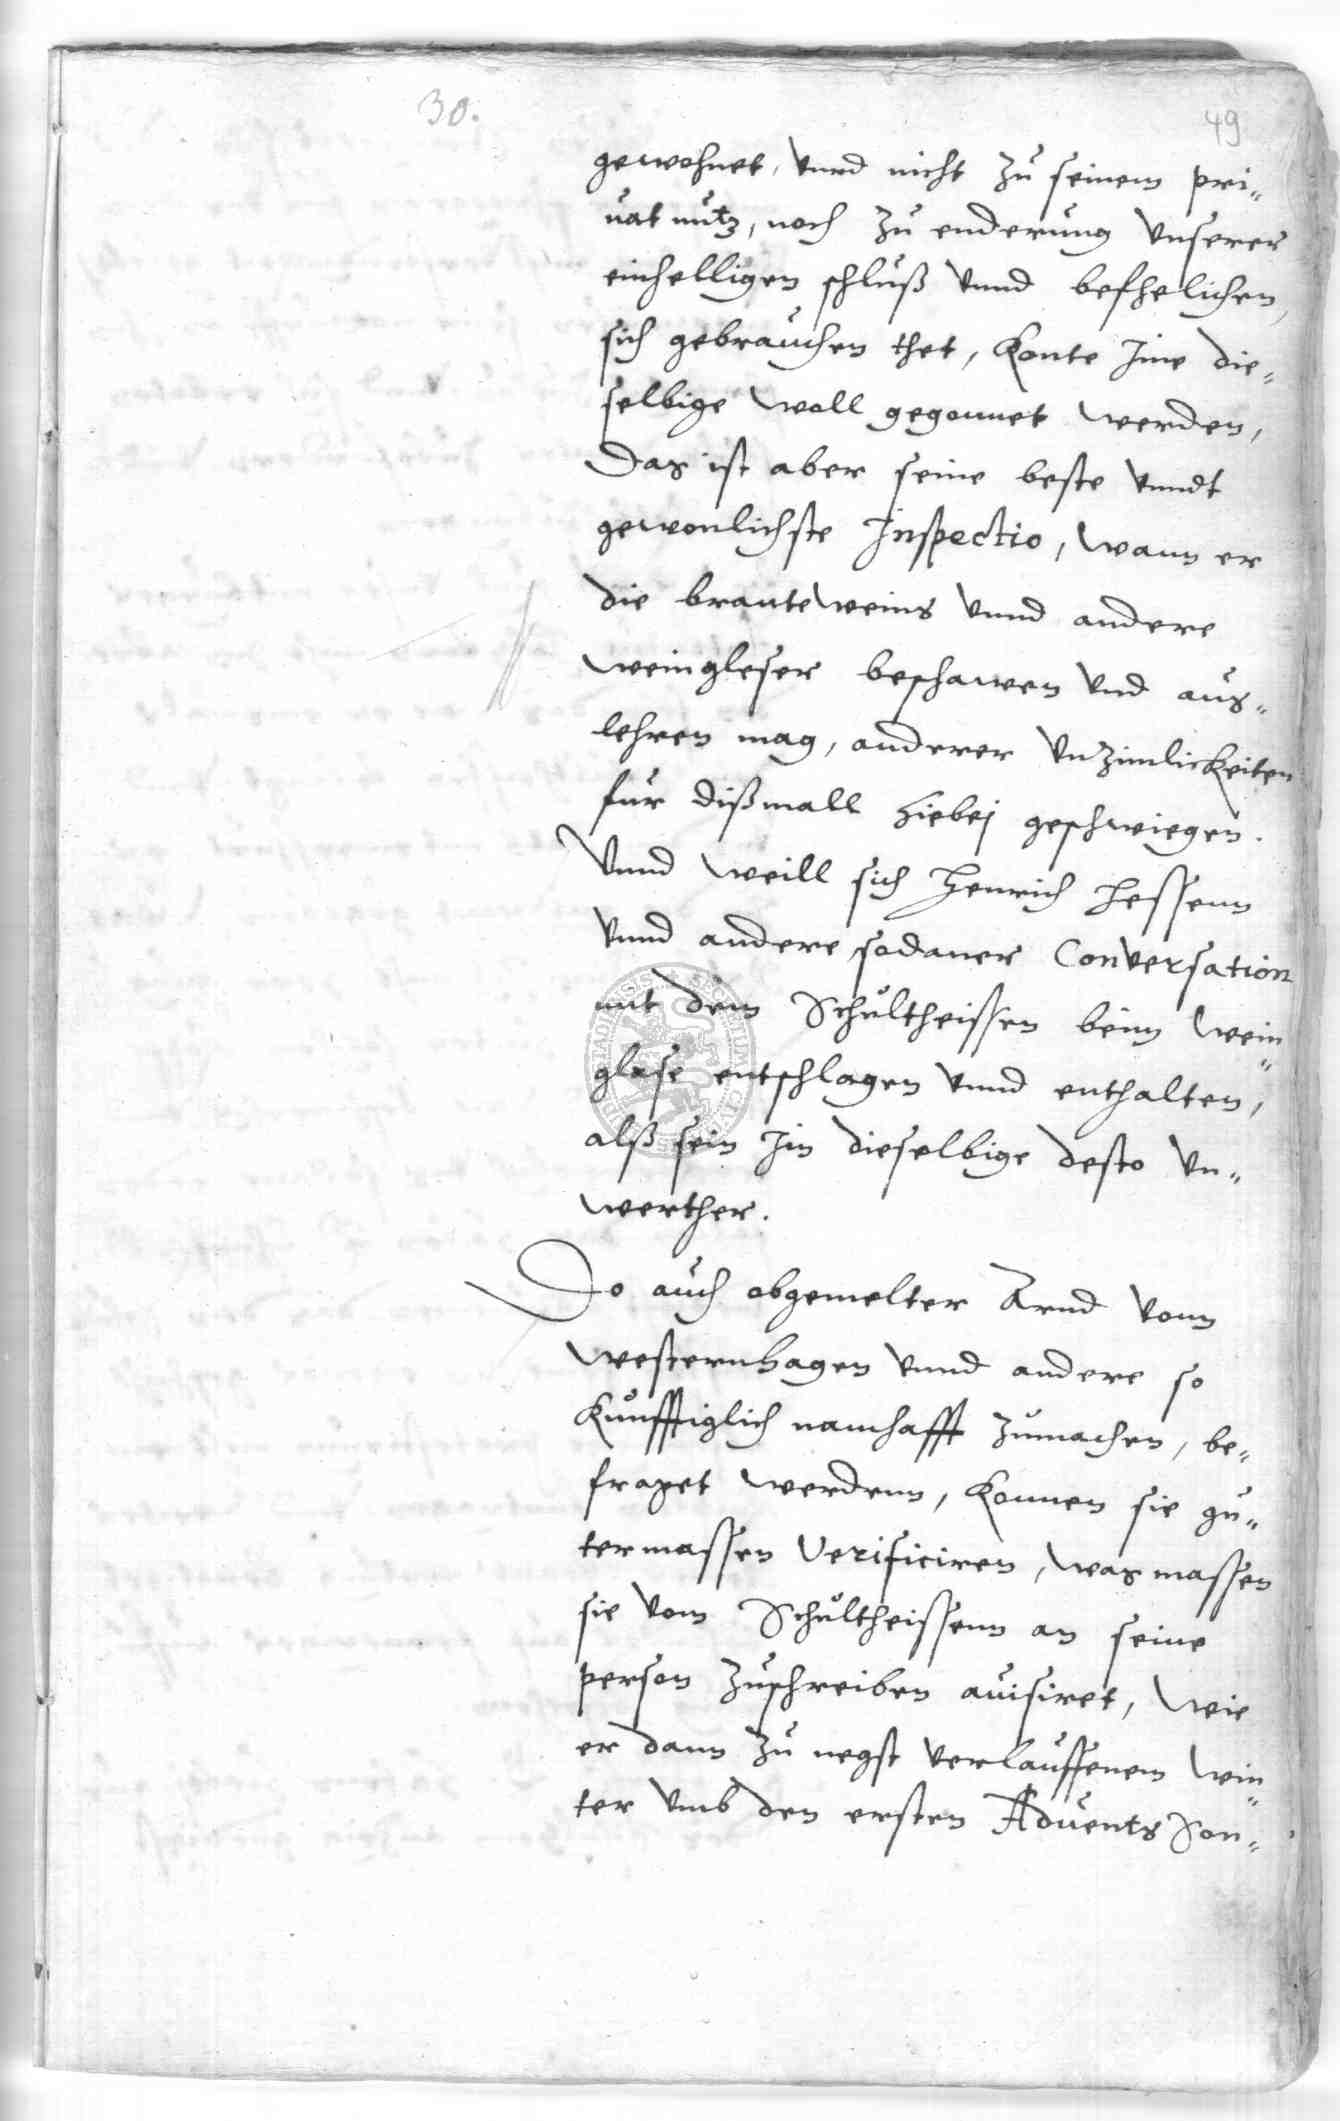 30.
49
gewohnet, vnnd nicht zu seinem pri-
uat nutz, noch zu enderung vnserer
einhelligen schluß vnnd befhelichen,
sich gebrauchen thet, Konte Ime die-
selbige woll gegonnet werden,
Das ist aber seine beste vnndt
gewonlichste Inspectio, wann er
die branteweins vnnd andere
weingleser beschawen vnd aus-
lehren mag, anderer vnzimlickeiten
fur dißmall hiebej geschwiegen.
Vnnd weill sich Henrich Hessenn
vnnd andere sodaner Conversation
mit dem Schultheissen beim wein-
glase entschlagen vnnd enthalten,
alß sein Im dieselbige desto vn-
werther.
Do auch obgemelter Arnd vonn
westernhagen vnnd andere so
Kunfftiglich namhafft zumachen, be-
fraget werdenn, Konnen sie gu-
termassen Verificiren, was massen
sie vom Schultheissenn an seine
person zuschreiben auisiret, wie
er dann zu negst verlauffenem win-
ter vmb den ersten Aduents Son-